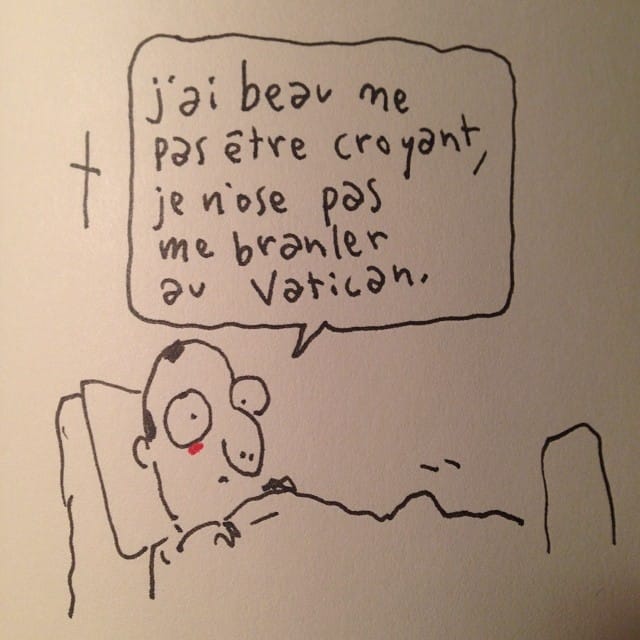 j'ai beau me
pas être croyant,
je n'ose pas
me branler
au Vatican.